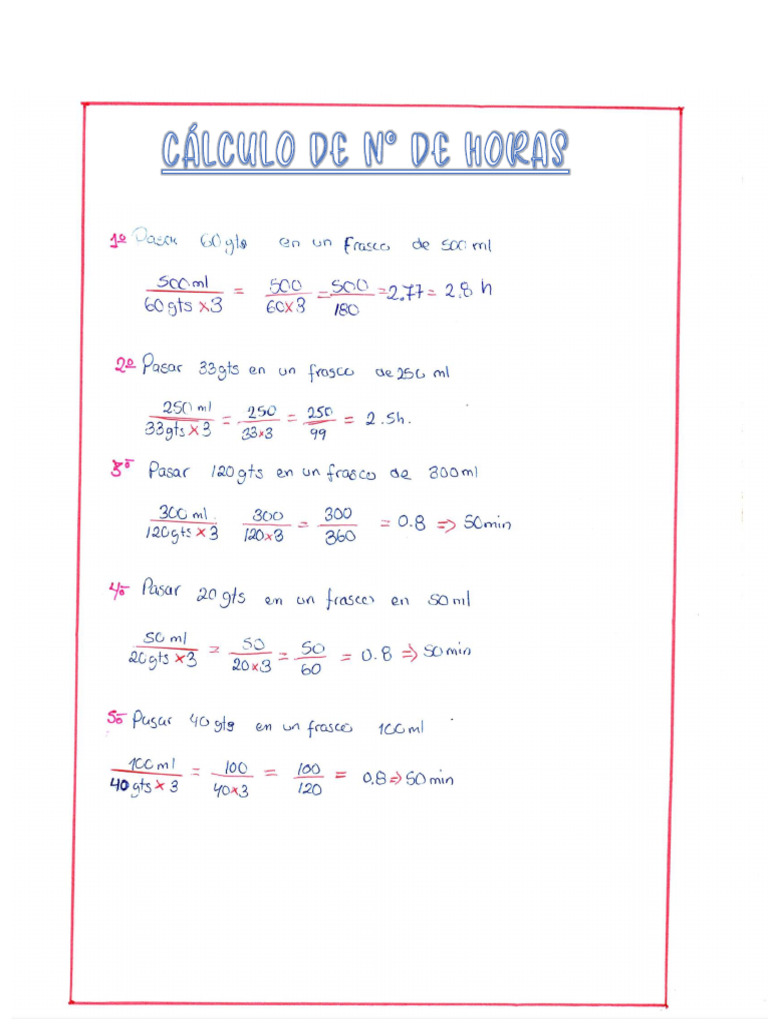 CÁLCULO DE Nº DE HORAS
1º Pasar 60gts en un frasco de 500 ml
500ml / 60gts x3 = 500 / 60x3 = 500 / 180 = 2.77 = 2.8 h
2º Pasar 33gts en un frasco de 250 ml
250 ml / 33gts x 3 = 250 / 33x3 = 250 / 99 = 2.5h.
3º Pasar 120gts en un frasco de 300ml
300 ml / 120gts x 3 300 / 120x3 = 300 / 360 = 0.8 => 50min
4º Pasar 20gts en un frasco en 50ml
50 ml / 20gts x3 = 50 / 20x3 = 50 / 60 = 0.8 => 50min
5º Pasar 40gts en un frasco 100ml
100ml / 40gts x 3 = 100 / 40x3 = 100 / 120 = 0.8=> 50min